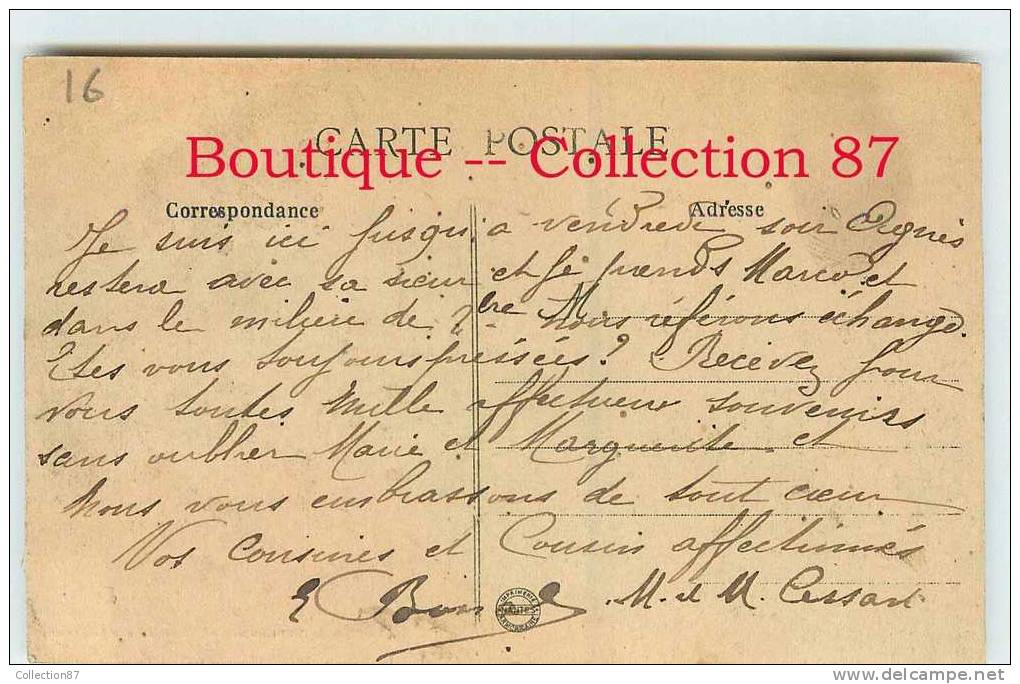 16
CARTE POSTALE
Boutique -- Collection 87
Correspondance
Adresse
Je suis ici jusqu'a vendredi soir Agnès
restera avec sa sœur et je prends Marco et
dans le milieu de 7bre nous référons échange.
Etes vous toujours pressées? Recevez pour
vous toutes mille affectueux souvenirs
sans oublier Marie et Marguerite et
Nous vous embrassons de tout cœur
Vos Cousines et Cousin affectionnés
E M. et M. Cessart
IMPRIMERIE
NANTES
ARMORICAINE
Collection87
delcampe.net